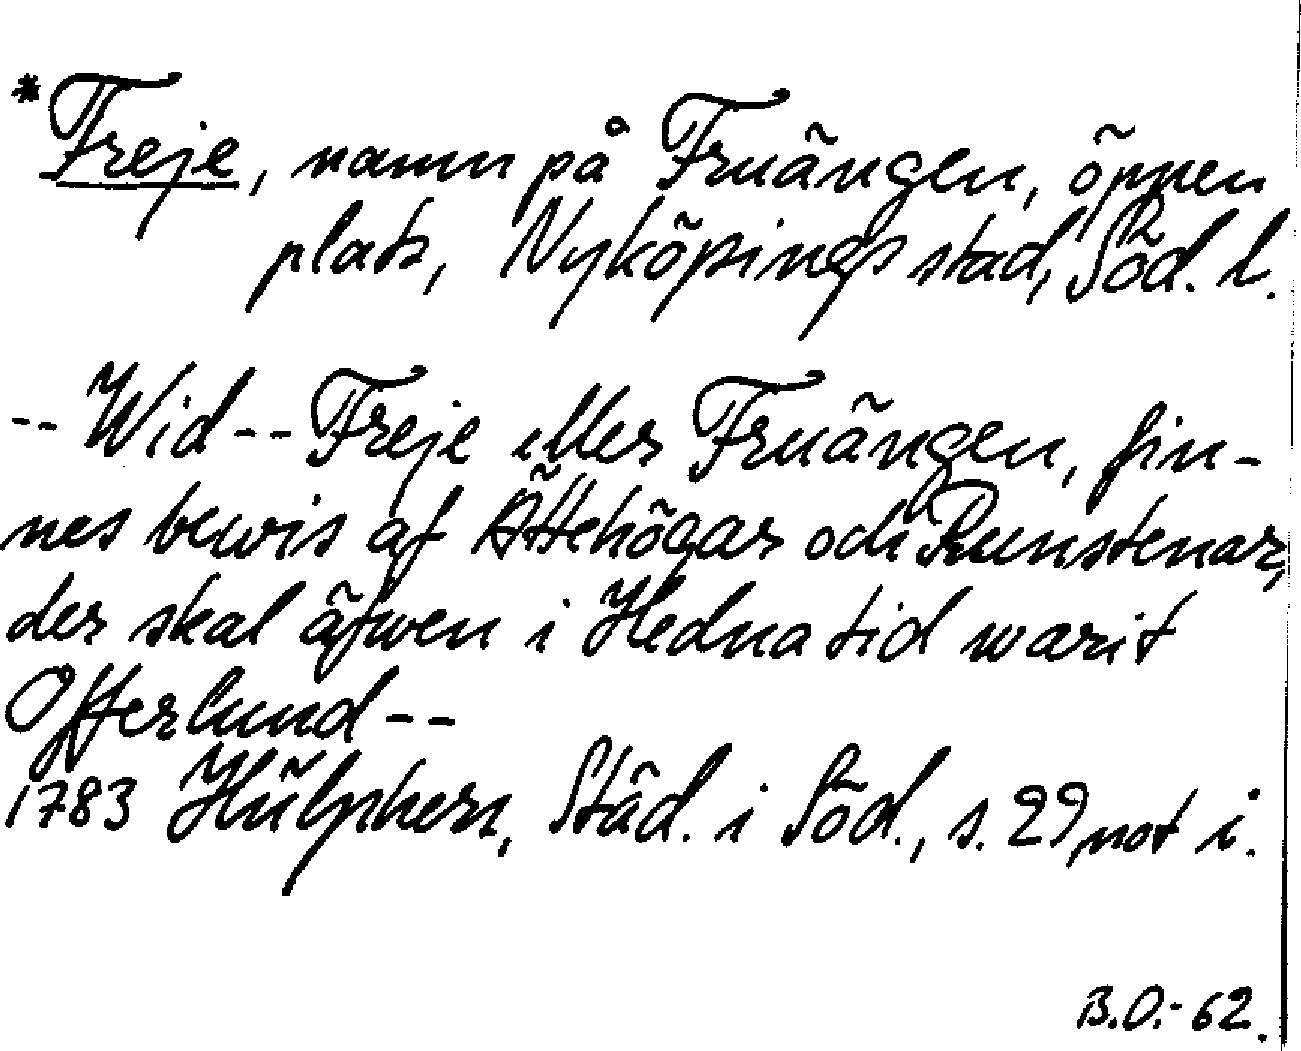 *Freje, namn på Fruängen, öppen
plats, Nyköpings stad, Söd. l.
-- Wid -- Freje eller Fruängen, fin-
nes bewis af Ättehögar och Runstenar,
der skal äfwen i Hedna tid warit
Offerlund --
1783 Hülphers, Städ. i Söd., s. 29, not i.
B.O.-62.